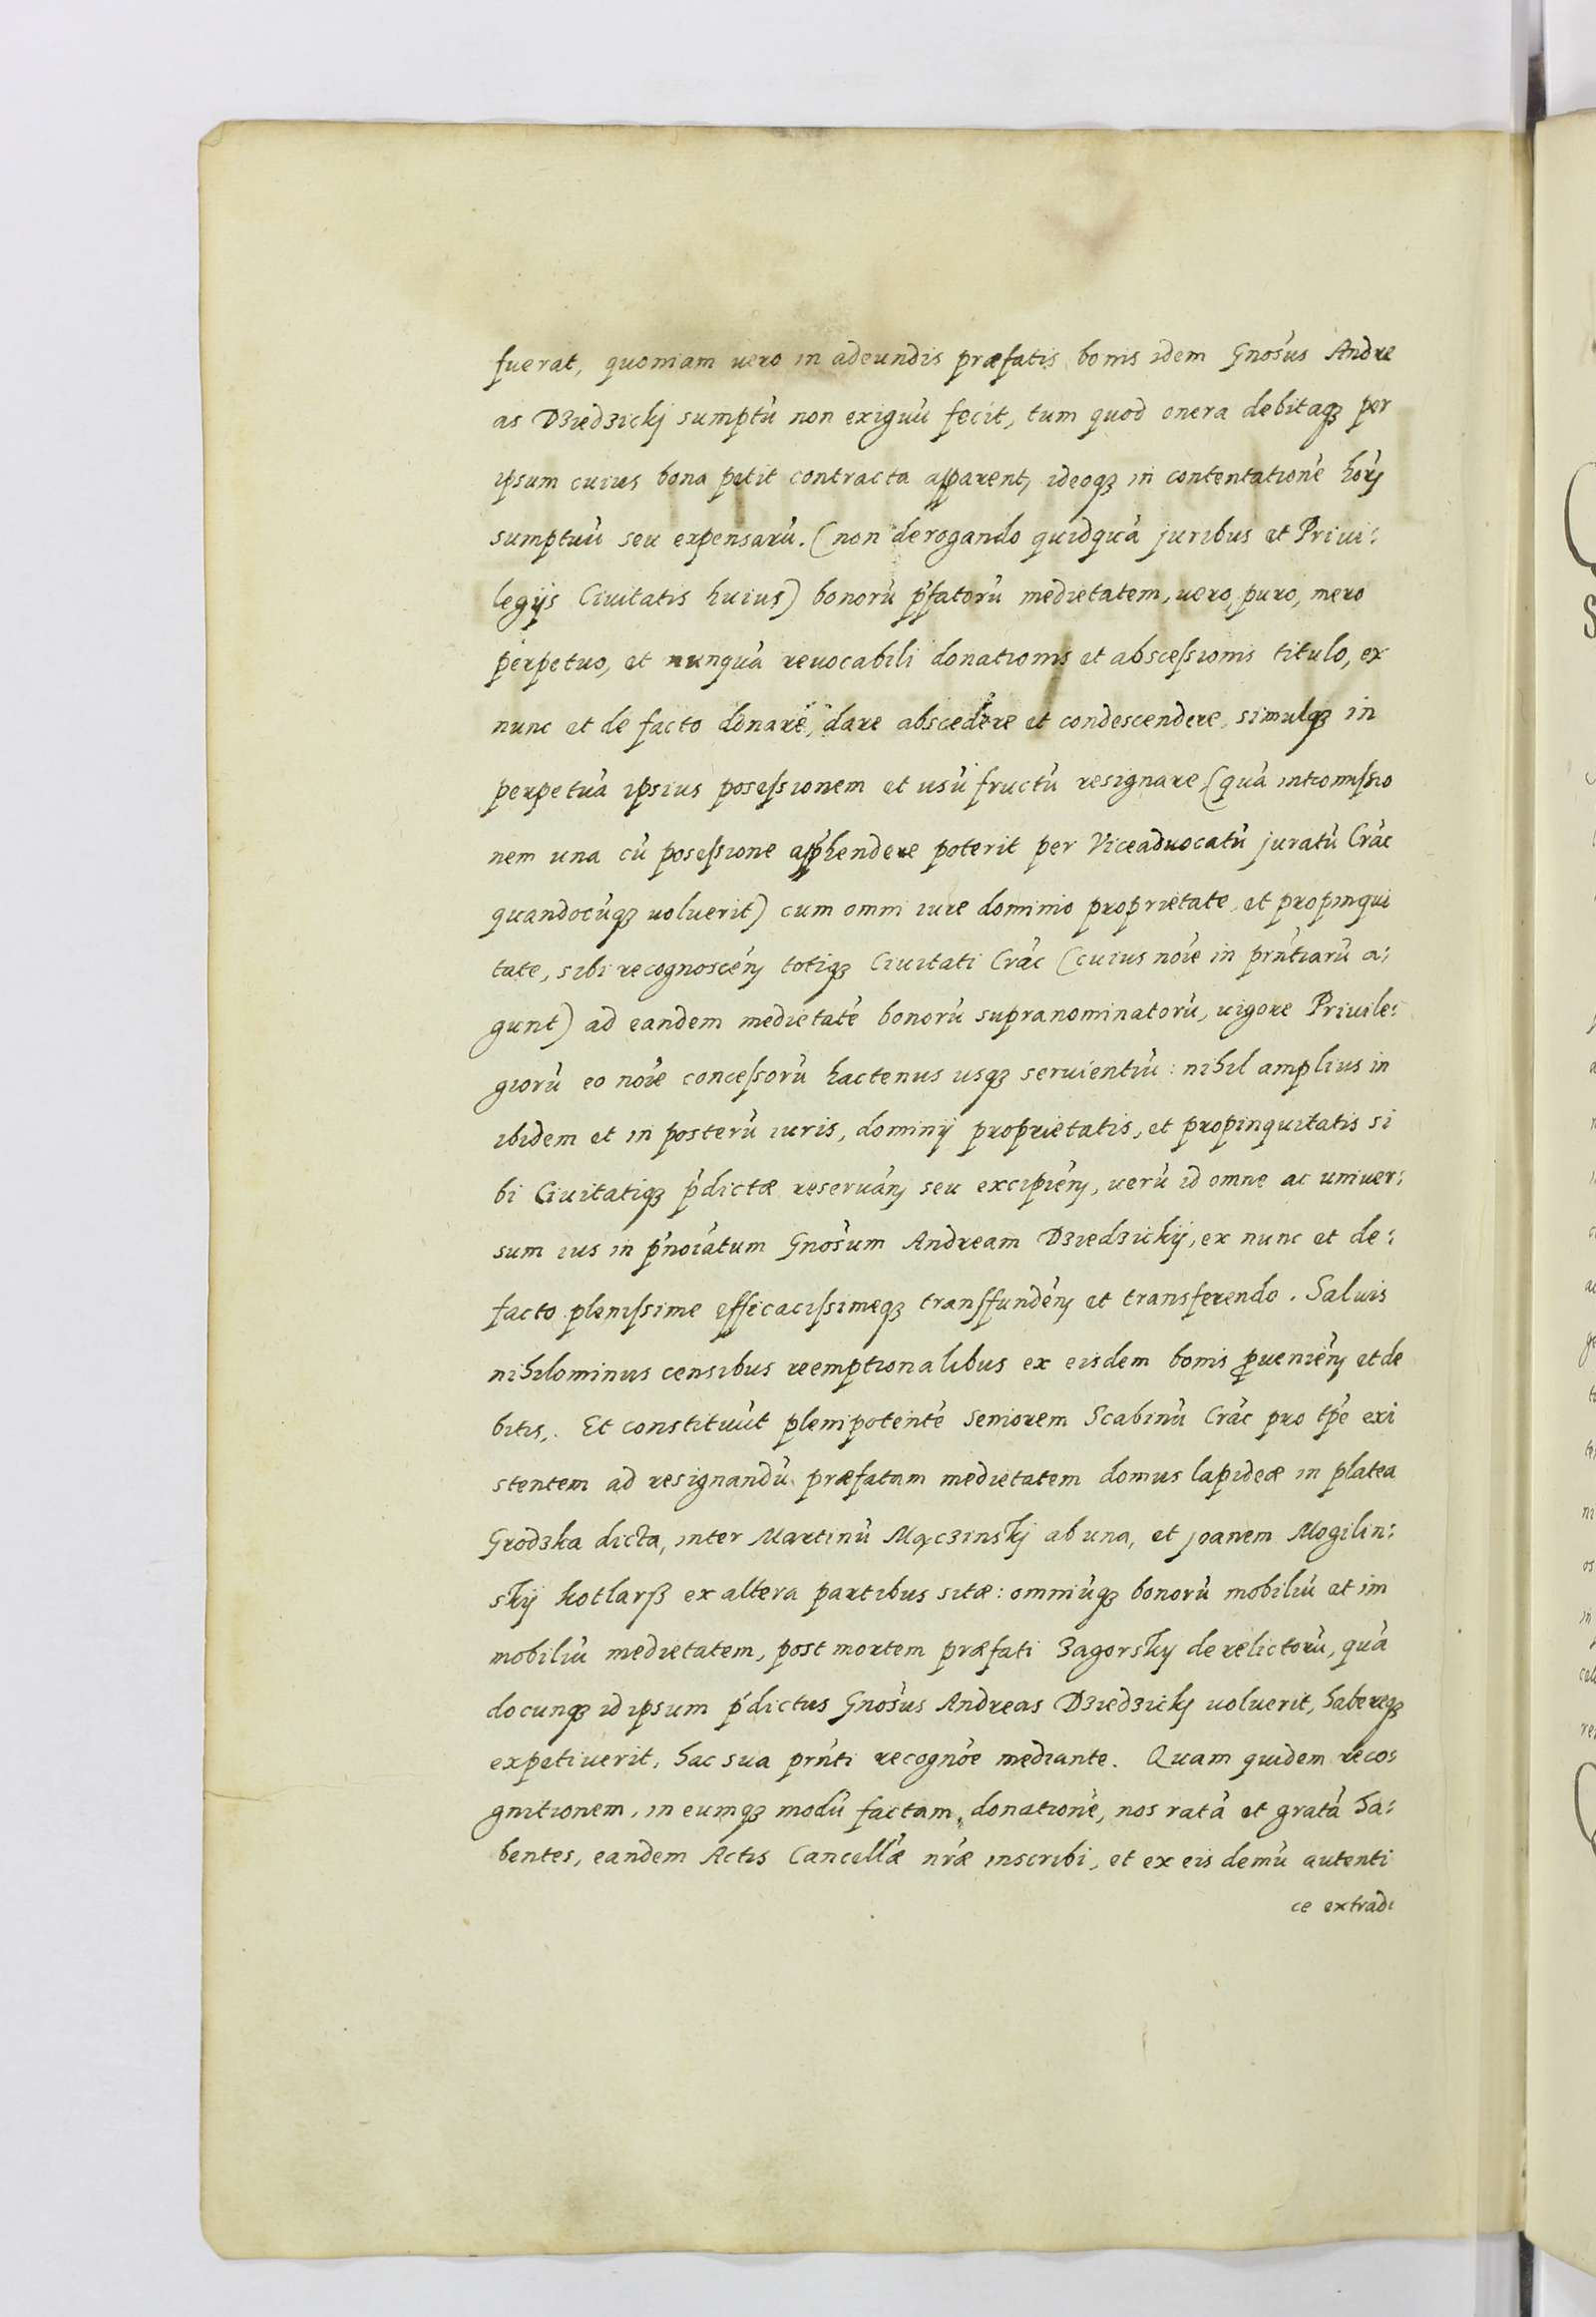 fuerat, quoniam uero in adeundis præfatis bonis idem Gnosus Andre
as Dziedzickj sumptũ non exiguũ fecit, tum quod onera debitaqȝ per
ipsum cuius bona petit contracta apparent, ideoqȝ in contentatione horꝫ
sumptuũ seu expensarũ. (non derogando quidquã juribus et Priui:
legijs Ciuitatis huius) bonorũ p̃fatorũ medietatem, uero, puro, mero
perpetuo, et nunquã reuocabili donationis et abscessionis titulo, ex
nunc et de facto donare, dare abscedere et condescendere, simulqȝ in
perpetuã ipsius posessionem et usũfructũ resignare, (quã intromissio
nem una cũ posessione app̃hendere poterit per Viceaduocatũ juratũ Crãc
quandocũqȝ uoluerit) cum omni iure dominio proprietate, et propinqui
tate, sibi recognoscẽn totiqȝ Ciuitati Crãc (cuius nõie in prñtiarũ a:
gunt) ad eandem medietatẽ bonorũ supranominatorũ, uigore Priuile:
giorũ eo nõie concessorũ hactenus usqȝ seruientiũ: nihil amplius in
ibidem et in posterũ iuris, dominij proprietatis, et propinquitatis si
bi Ciuitatiqȝ p̃dictæ reseruãn seu excipiẽn, uerũ id omne ac uniuer:
sum ius in p̃noiãtum Gnosum Andream Dziedzickij, ex nunc et de:
facto plenissime efficacissimeqȝ transfundẽn et transferendo. Saluis
nihilominus censibus reemptionalibus ex eisdem bonis ꝓueniẽn et de
bitis,. Et constituũt plenipotentẽ Seniorem Scabinũ Crãc pro tp̃e exi
stentem ad resignandũ præfatam medietatem domus lapideæ in platea
Grodzka dicta, inter Martinũ Mączinskj ab una, et joanem Mogilin:
skij kotlarß ex altera partibus sitæ: omniũqȝ bonorũ mobiliũ et im
mobiliũ medietatem, post mortem præfati Zagorsky derelictorũ, quã
docunqȝ id ipsum p̃dictus Gnosus Andreas Dziedzickj uoluerit, habereqȝ
expetiuerit, hac sua prñti recognõe mediante. Quam quidem reco:
gnitionem, in eumqȝ modũ factam, donationẽ, nos ratã et gratã ha:
bentes, eandem Actis Cancellæ nr̃æ inscribi, et ex eis demũ autenti
ce extradi